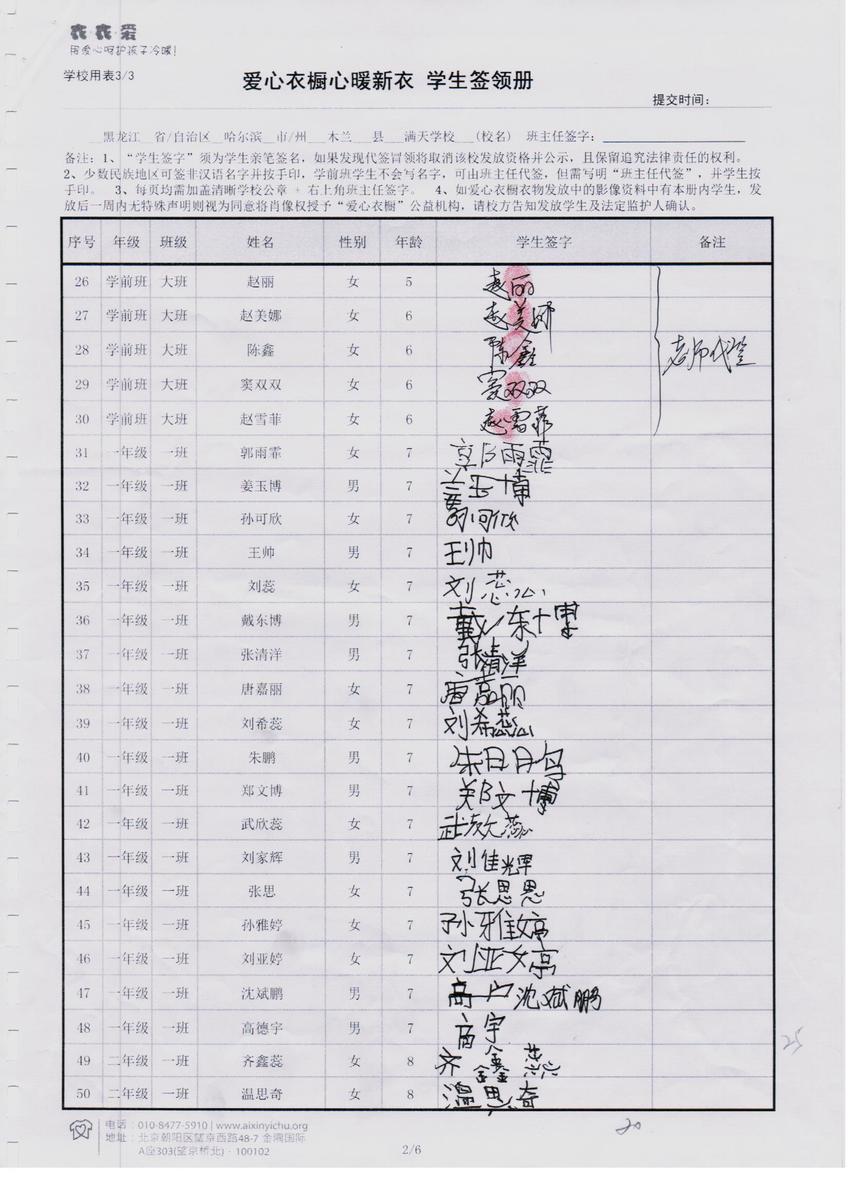 衣·衣·爱
用爱心呵护孩子冷暖!
学校用表3/3
爱心衣橱心暖新衣 学生签领册
提交时间:
黑龙江 省/自治区 哈尔滨 市/州 木兰 县 满天学校 (校名) 班主任签字:
备注:1、“学生签字”须为学生亲笔签名,如果发现代签冒领将取消该校发放资格并公示,且保留追究法律责任的权利。
2、少数民族地区可签非汉语名字并按手印,学前班学生不会写名字,可由班主任代签,但需写明“班主任代签”,并学生按
手印。 3、每页均需加盖清晰学校公章 + 右上角班主任签字。 4、如爱心衣橱衣物发放中的影像资料中有本册内学生,发
放后一周内无特殊声明则视为同意将肖像权授予“爱心衣橱”公益机构,请校方告知发放学生及法定监护人确认。
序号 年级 班级 姓名 性别 年龄 学生签字 备注
26 学前班 大班 赵丽 女 5 赵丽
27 学前班 大班 赵美娜 女 6 赵美娜
28 学前班 大班 陈鑫 女 6 陈鑫 老师代签
29 学前班 大班 窦双双 女 6 窦双双
30 学前班 大班 赵雪菲 女 6 赵雪菲
31 一年级 一班 郭雨霏 女 7 郭雨霏
32 一年级 一班 姜玉博 男 7 姜玉博
33 一年级 一班 孙可欣 女 7
34 一年级 一班 王帅 男 7 王帅
35 一年级 一班 刘蕊 女 7 刘蕊
36 一年级 一班 戴东博 男 7 戴东博
37 一年级 一班 张清洋 男 7 张清洋
38 一年级 一班 唐嘉丽 女 7 唐嘉丽
39 一年级 一班 刘希蕊 女 7 刘希蕊
40 一年级 一班 朱鹏 男 7 朱鹏
41 一年级 一班 郑文博 男 7 郑文博
42 一年级 一班 武欣蕊 女 7 武欣蕊
43 一年级 一班 刘家辉 男 7 刘佳辉
44 一年级 一班 张思 女 7 张思思
45 一年级 一班 孙雅婷 女 7 孙雅婷
46 一年级 一班 刘亚婷 女 7 刘亚婷
47 一年级 一班 沈斌鹏 男 7 沈斌鹏
48 一年级 一班 高德宇 男 7 高宇
49 二年级 一班 齐鑫蕊 女 8 齐鑫蕊
50 二年级 一班 温思奇 女 8 温思奇
25
20
电话:010-8477-5910 | www.aixinyichu.org
地址:北京朝阳区望京西路48-7 金隅国际
A座303(望京桥北)· 100102
2/6